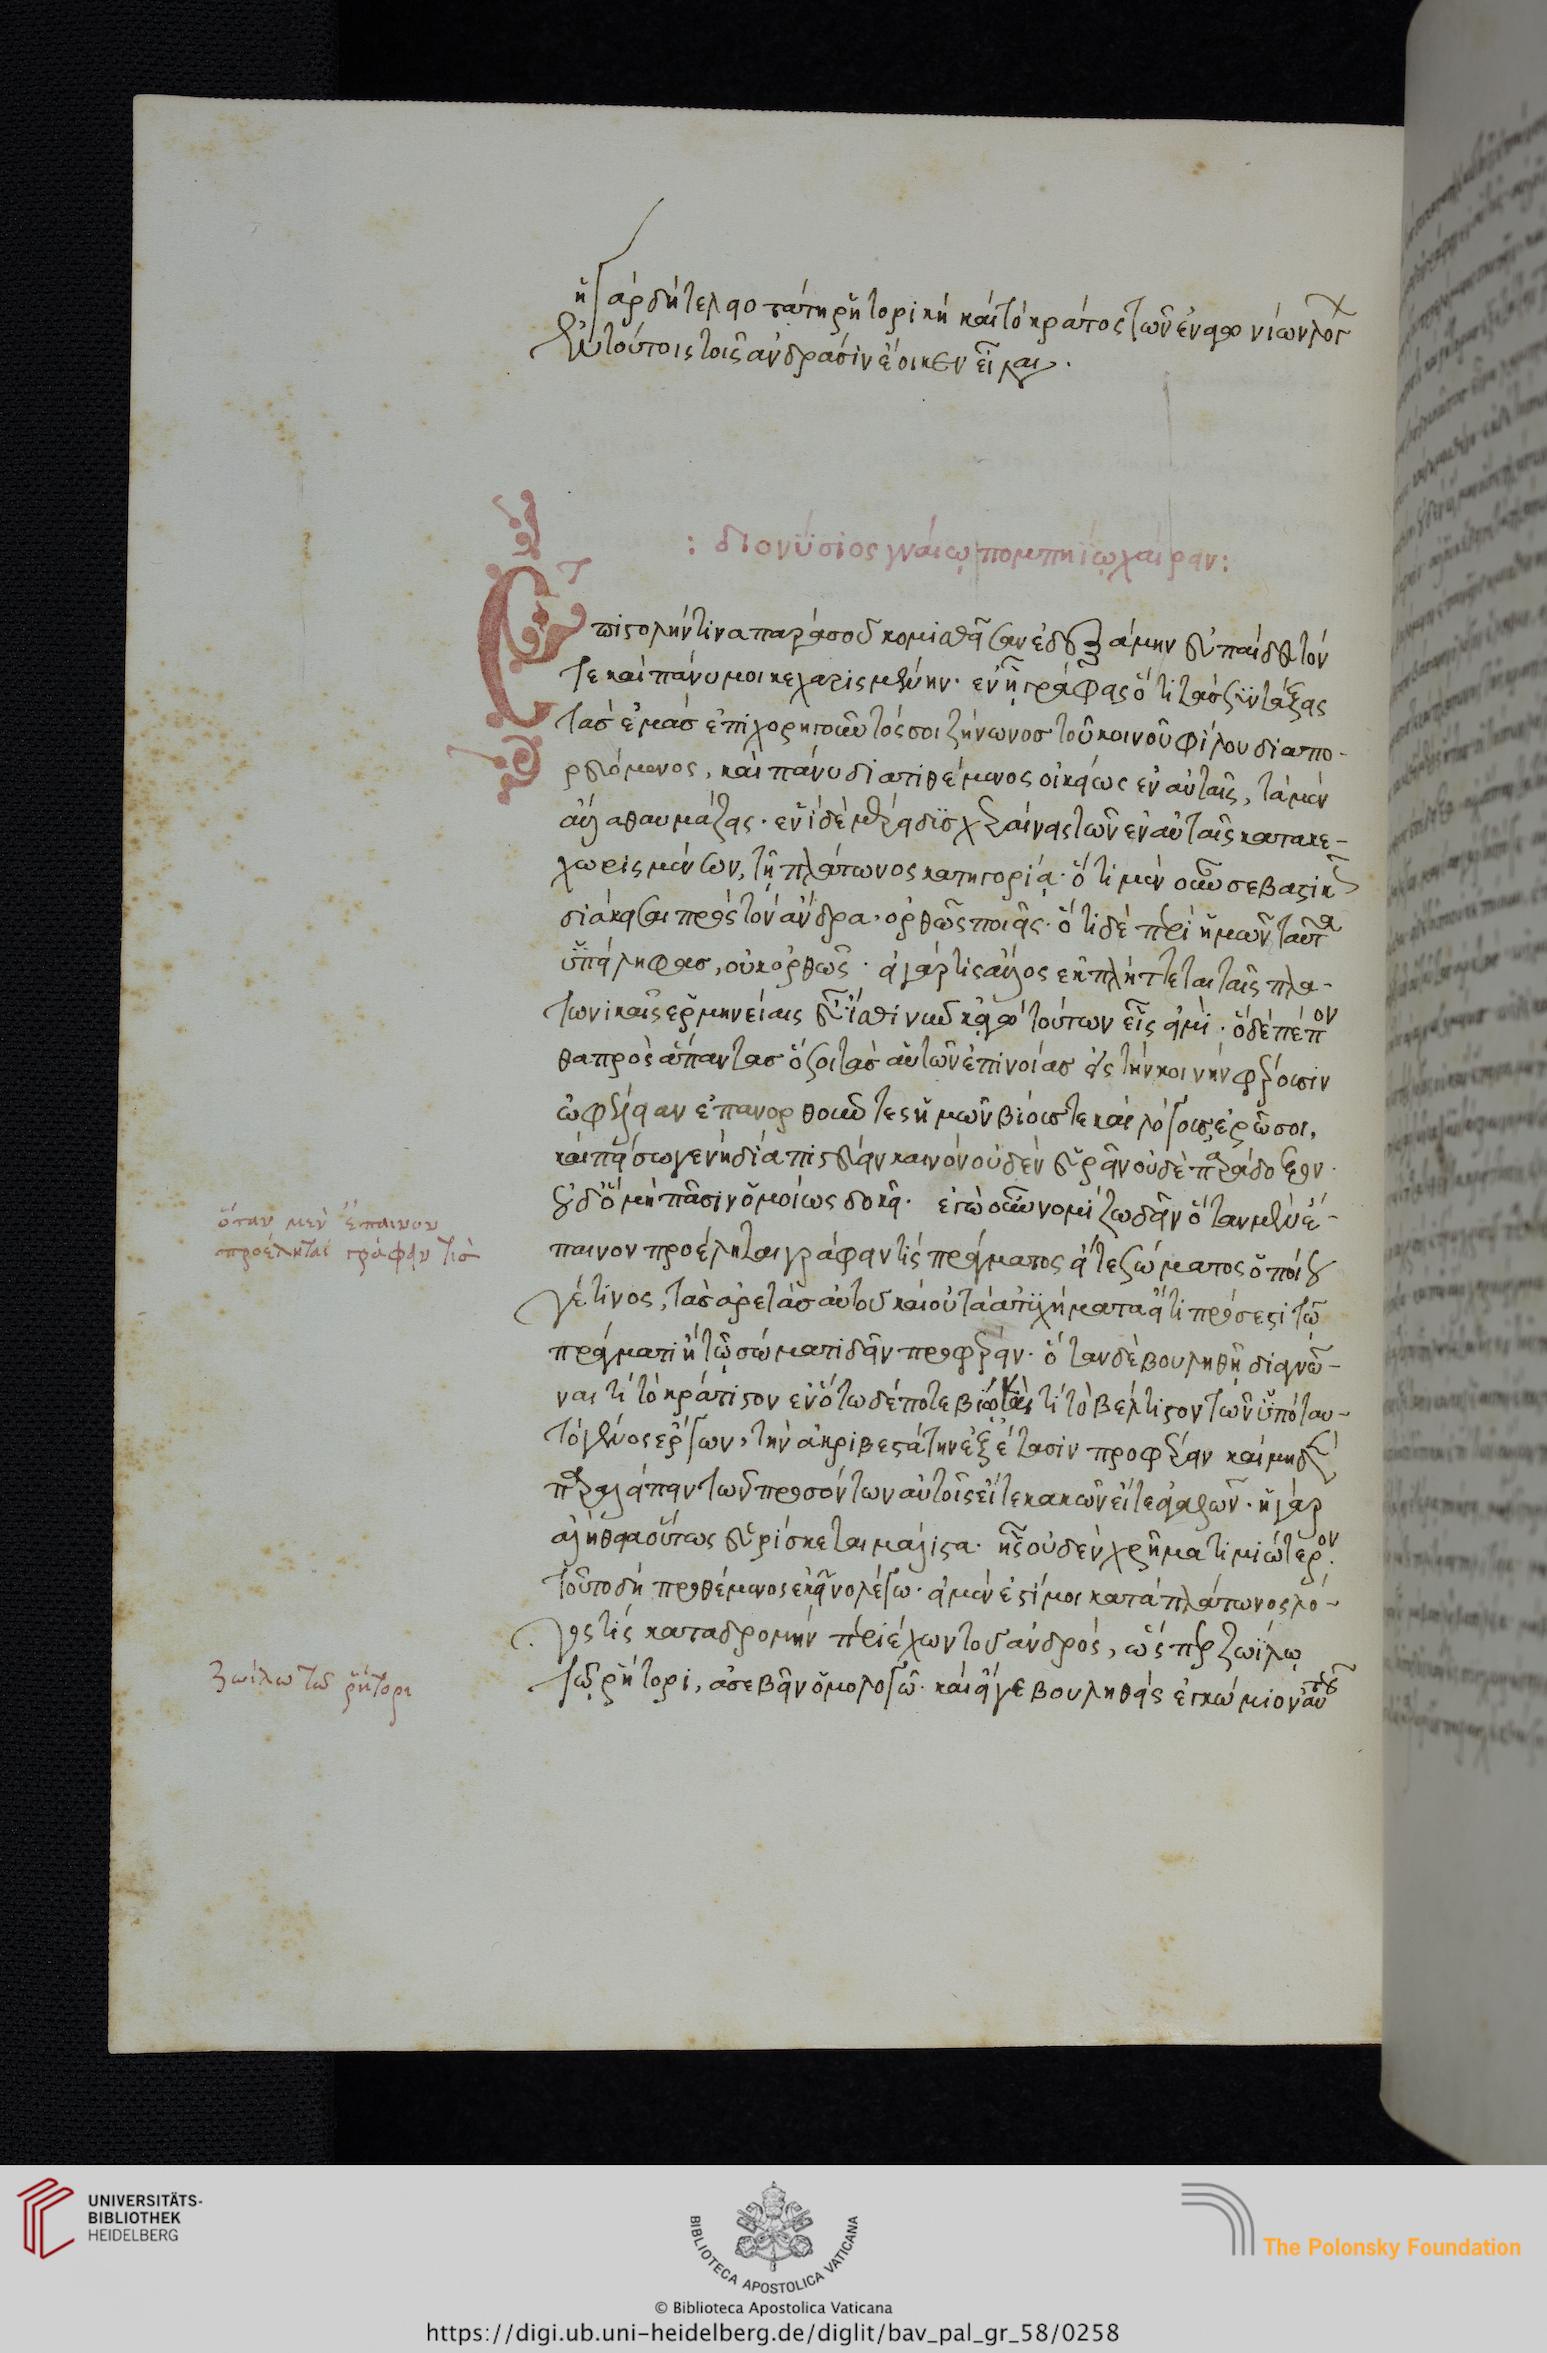 ἡ γὰρ δὴ τελειοτάτη ῥητορικὴ καὶ τὸ κράτος τῶν ἐναγωνίων λόγ
ἐν τούτοις τοῖς ἀνδράσιν ἔοικεν εἶναι.
: διονύσιος γναίῳ πομπηΐῳ χαίρειν:
Ἐπιστολήν τινα παρὰ σοῦ κομισθεῖσαν ἐδεξάμην εὐπαίδευτόν
τε καὶ πάνυ μοι κεχαρισμένην. ἐν ᾗ γράφεις ὅτι τὰς συντάξεις
τὰς ἐμὰς ἐπιχορηγοῦντός σοι ζήνωνος τοῦ κοινοῦ φίλου διαπο-
ρευόμενος, καὶ πάνυ διατιθέμενος οἰκείως ἐν αὐταῖς, τὰ μὲν
ἄλλα θαυμάζεις. ἑνὶ δὲ μέρει δυσχεραίνεις τῶν ἐν αὐταῖς κατακε-
χωρισμένων, τῇ πλάτωνος κατηγορίᾳ. ὅτι μὲν οὖν σεβαστικ
διάκεισαι πρὸς τὸν ἄνδρα, ὀρθῶς ποιεῖς. ὅτι δὲ περὶ ἡμῶν ταῦτα
ὑπείληφας, οὐκ ὀρθῶς. εἰ γάρ τις ἄλλος ἐκπλήττεται ταῖς πλα-
τωνικαῖς ἑρμηνείαις εὖ ἴσθι νῦν κἀγὼ τούτων εἷς εἰμι. ὃ δὲ πέπον
θα πρὸς ἅπαντας ὅσοι τὰς αὑτῶν ἐπινοίας εἰς τὴν κοινὴν φέρουσιν
ὠφέλειαν ἐπανορθοῦντες ἡμῶν βίους τε καὶ λόγους, ἐρῶ σοι,
καὶ πείσω γε νὴ δία πιστεύειν καινὸν οὐδὲν εὑρεῖν οὐδὲ παράδοξον.
οὐδ' ὃ μὴ πᾶσιν ὁμοίως δοκεῖ. ἐγὼ οὖν νομίζω δεῖν ὅταν μὲν ἔ-
παινον προέληται γράφειν τις πράγματος εἴτε σώματος ὁποίου
γέ τινος, τὰς ἀρετὰς αὐτοῦ καὶ οὐ τὰ ἀτυχήματα εἴ τι πρόσεστι τῷ
πράγματι ἢ τῷ σώματι δεῖν προφέρειν. ὅταν δὲ βουληθῇ διαγνῶ-
ναι τί τὸ κράτιστον ἐν ὅτῳ δέ ποτε βίῳ καὶ τί τὸ βέλτιστον τῶν ὑπὸ ταυ-
τὸ γένος ἔργων, τὴν ἀκριβεστάτην ἐξέτασιν προφέρειν καὶ μηδὲν
παραλείπειν τῶν προσόντων αὐτοῖς εἴτε κακῶν εἴτε ἀγαθῶν. ἡ γὰρ
ἀλήθεια οὕτως εὑρίσκεται μάλιστα. ἧς οὐδὲν χρῆμα τιμιώτερον.
τοῦτο δὴ προθέμενος ἐκεῖνο λέγω. εἰ μὲν ἐστί μοι κατὰ πλάτωνος λό-
γος τις καταδρομὴν περιέχων τοῦ ἀνδρός, ὥσπερ ζωίλῳ
τῷ ῥήτορι, ἀσεβεῖν ὁμολογῶ. καὶ εἴ γε βουληθεὶς ἐγκώμιον αὐτοῦ
ὅταν μὲν ἔπαινον
προέληται γράφειν τις
ζωίλω τῶ ῥήτορι
UNIVERSITÄTS-
BIBLIOTHEK
HEIDELBERG
BIBLIOTECA APOSTOLICA VATICANA
The Polonsky Foundation
© Biblioteca Apostolica Vaticana
https://digi.ub.uni-heidelberg.de/diglit/bav_pal_gr_58/0258